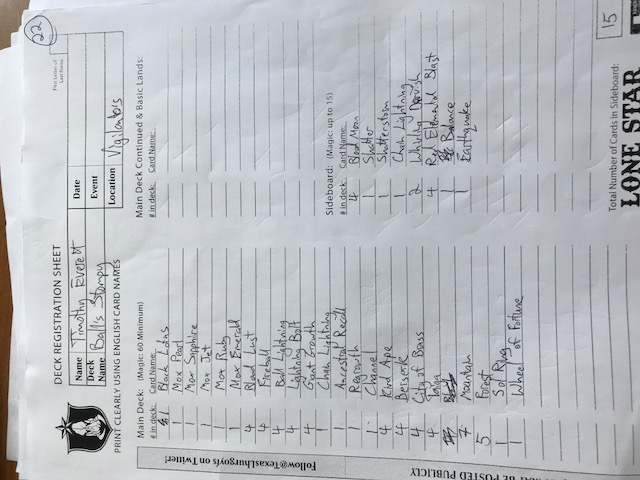 22
DECK REGISTRATION SHEET
First Letter of
Last Name
Name Timothy Everett Date
Deck Name Ball's Stompy Event
Location Vigilante's
PRINT CLEARLY USING ENGLISH CARD NAMES
Follow@TexasLhurgoyfs on Twitter!
MAY BE POSTED PUBLICLY
Main Deck: (Magic: 60 Minimum)
# in deck: Card Name:
1 Black Lotus
1 Mox Pearl
1 Mox Sapphire
1 Mox Jet
1 Mox Ruby
1 Mox Emerald
4 Blood Lust
4 Fireball
4 Ball Lightning
4 Lightning Bolt
4 Giant Growth
1 Chain Lightning
1 Ancestral Recall
1 Regrowth
1 Channel
4 Kird Ape
4 Berserk
4 City of Brass
4 Taiga
7 Mountain
5 Forest
1 Sol Ring
1 Wheel of Fortune
Main Deck Continued & Basic Lands:
# in deck: Card Name:
Sideboard: (Magic: up to 15)
# in deck: Card Name:
4 Blood Moon
1 Shatter
1 Shatterstorm
1 Chain Lightning
2 Whirling Dervish
4 Red Elemental Blast
1 Balance
1 Earthquake
Total Number of Cards in Sideboard: 15
LONE STAR